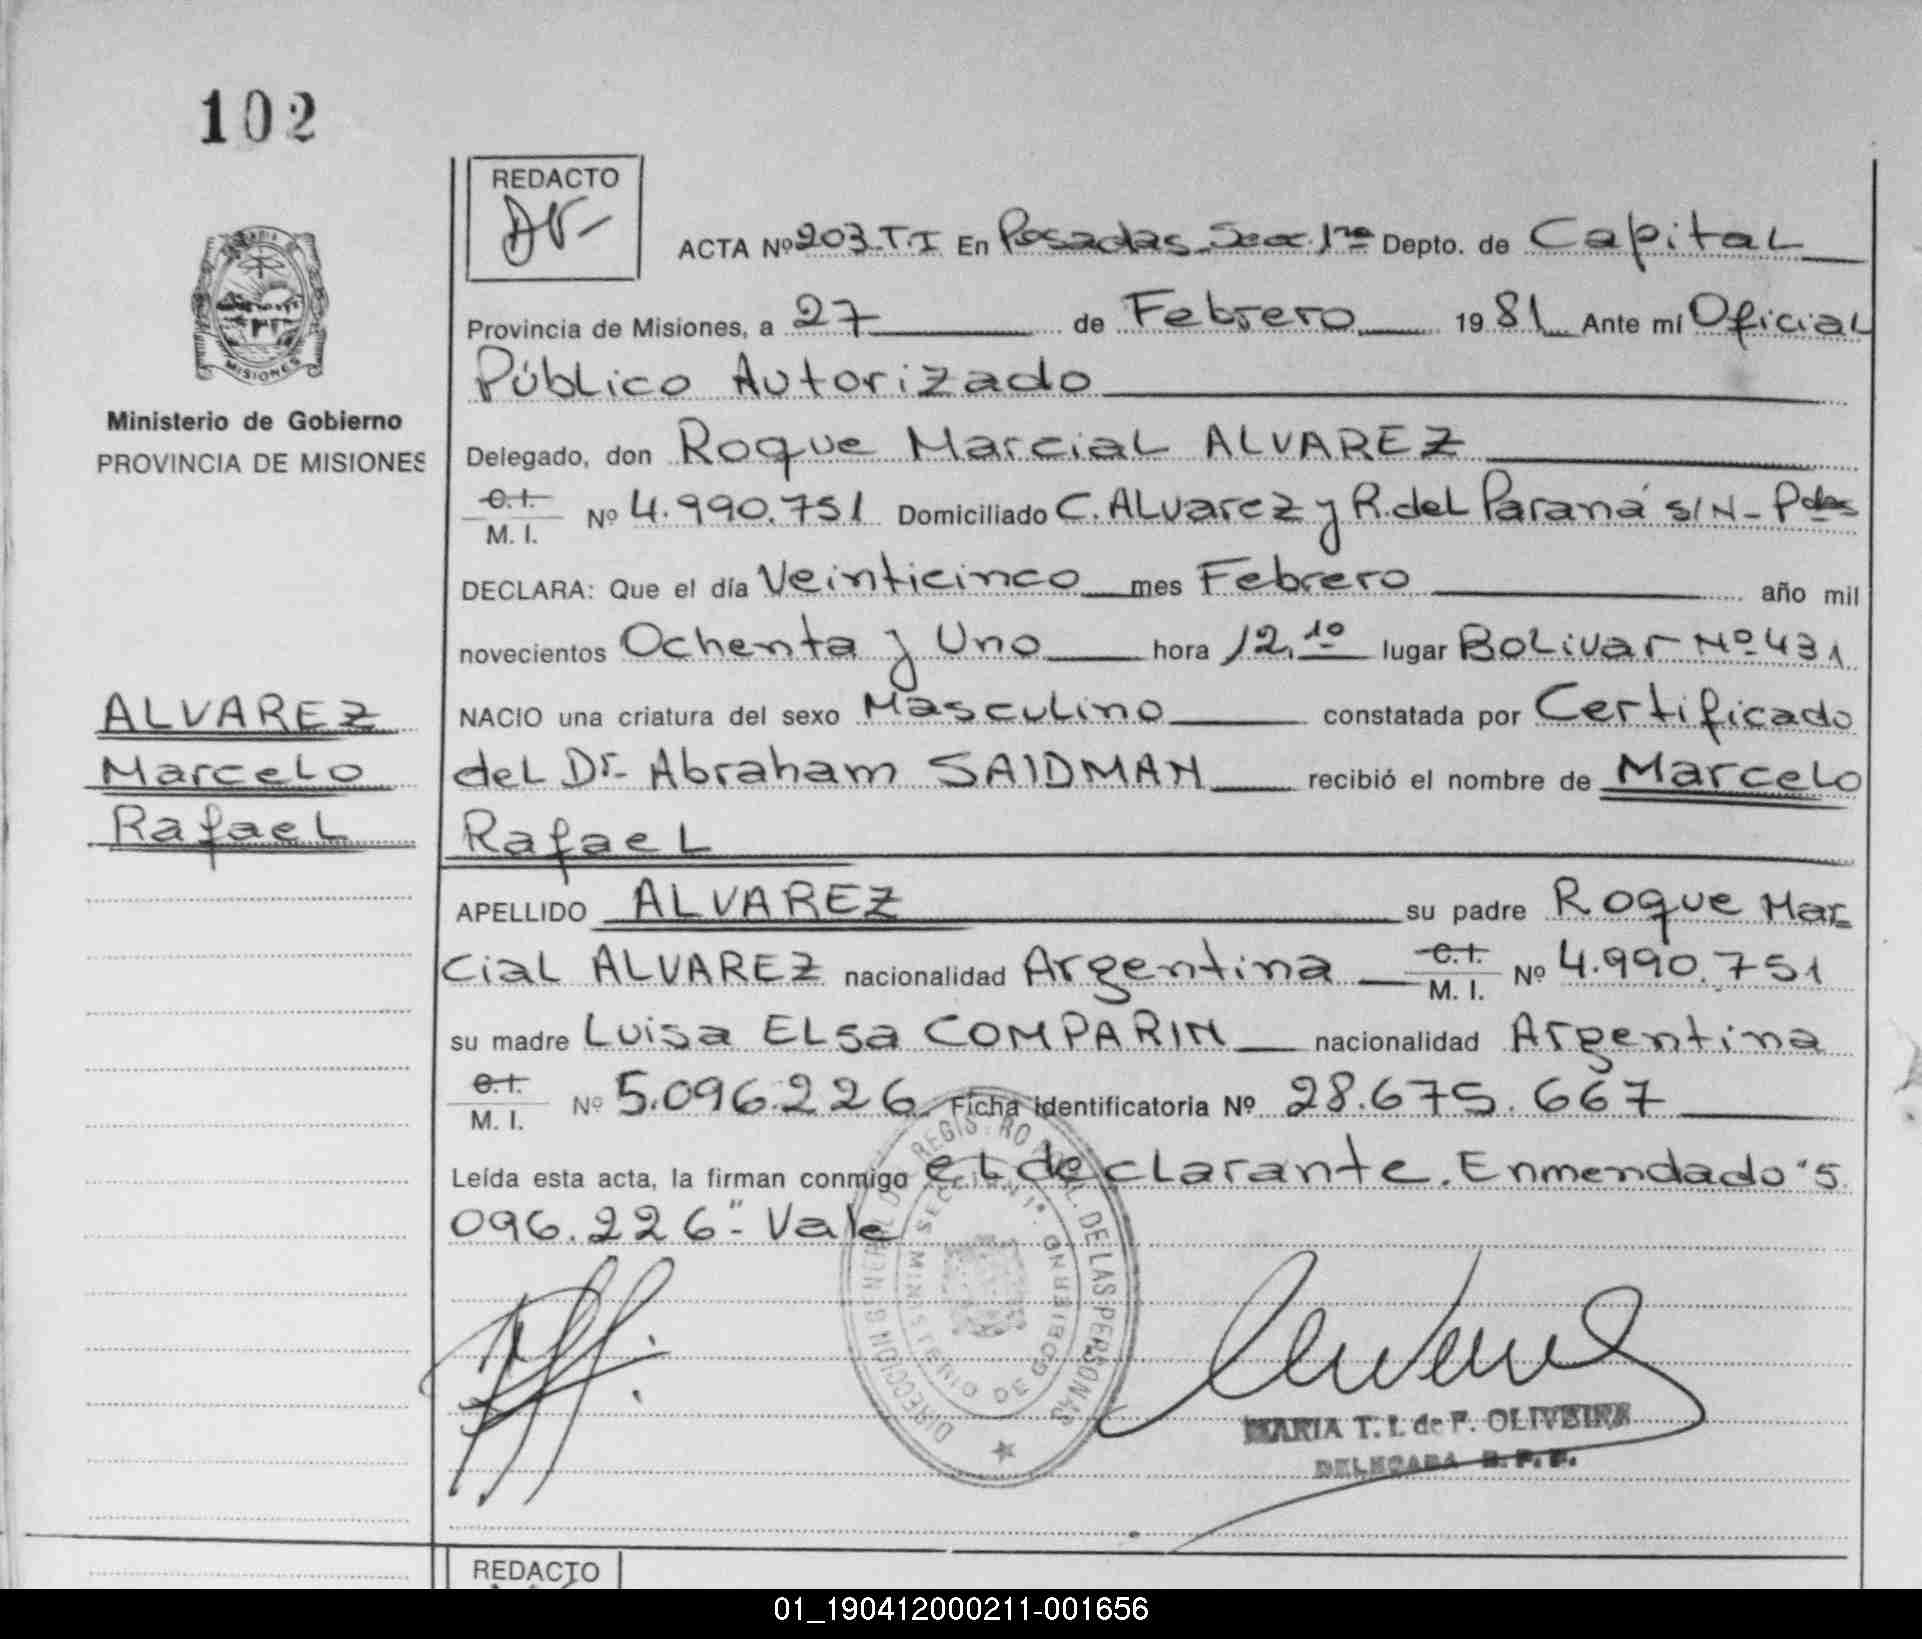 102
REDACTO
ACTA Nº 203.T.I En Posadas Secc. 1ra Depto. de Capital
MISIONES
Provincia de Misiones, a 27 de Febrero 1981 Ante mi Oficial
Público Autorizado
Ministerio de Gobierno
PROVINCIA DE MISIONES
Delegado, don Roque Marcial ALVAREZ
C.I.
M. I. Nº 4.990.751 Domiciliado C. Alvarez y R. del Paraná s/N - Pdas
DECLARA: Que el día Veinticinco mes Febrero año mil
novecientos Ochenta y Uno hora 12.10 lugar Bolivar Nº 431
ALVAREZ
Marcelo
Rafael
NACIO una criatura del sexo Masculino constatada por Certificado
del Dr. Abraham SAIDMAN recibió el nombre de Marcelo
Rafael
APELLIDO ALVAREZ su padre Roque Mar-
cial ALVAREZ nacionalidad Argentina C.I. M. I. Nº 4.990.751
su madre Luisa Elsa COMPARIN nacionalidad Argentina
C.I.
M. I. Nº 5.096.226 Ficha identificatoria Nº 28.675.667
Leída esta acta, la firman conmigo el declarante. Enmendado "5.
096.226" - Vale
DIRECCION GENERAL DEL REGISTRO PCIAL. DE LAS PERSONAS
MINISTERIO DE GOBIERNO
SECCION 1ª
MARIA T. I. de F. OLIVEIRA
DELEGADA R. P. P.
REDACTO
01_190412000211-001656